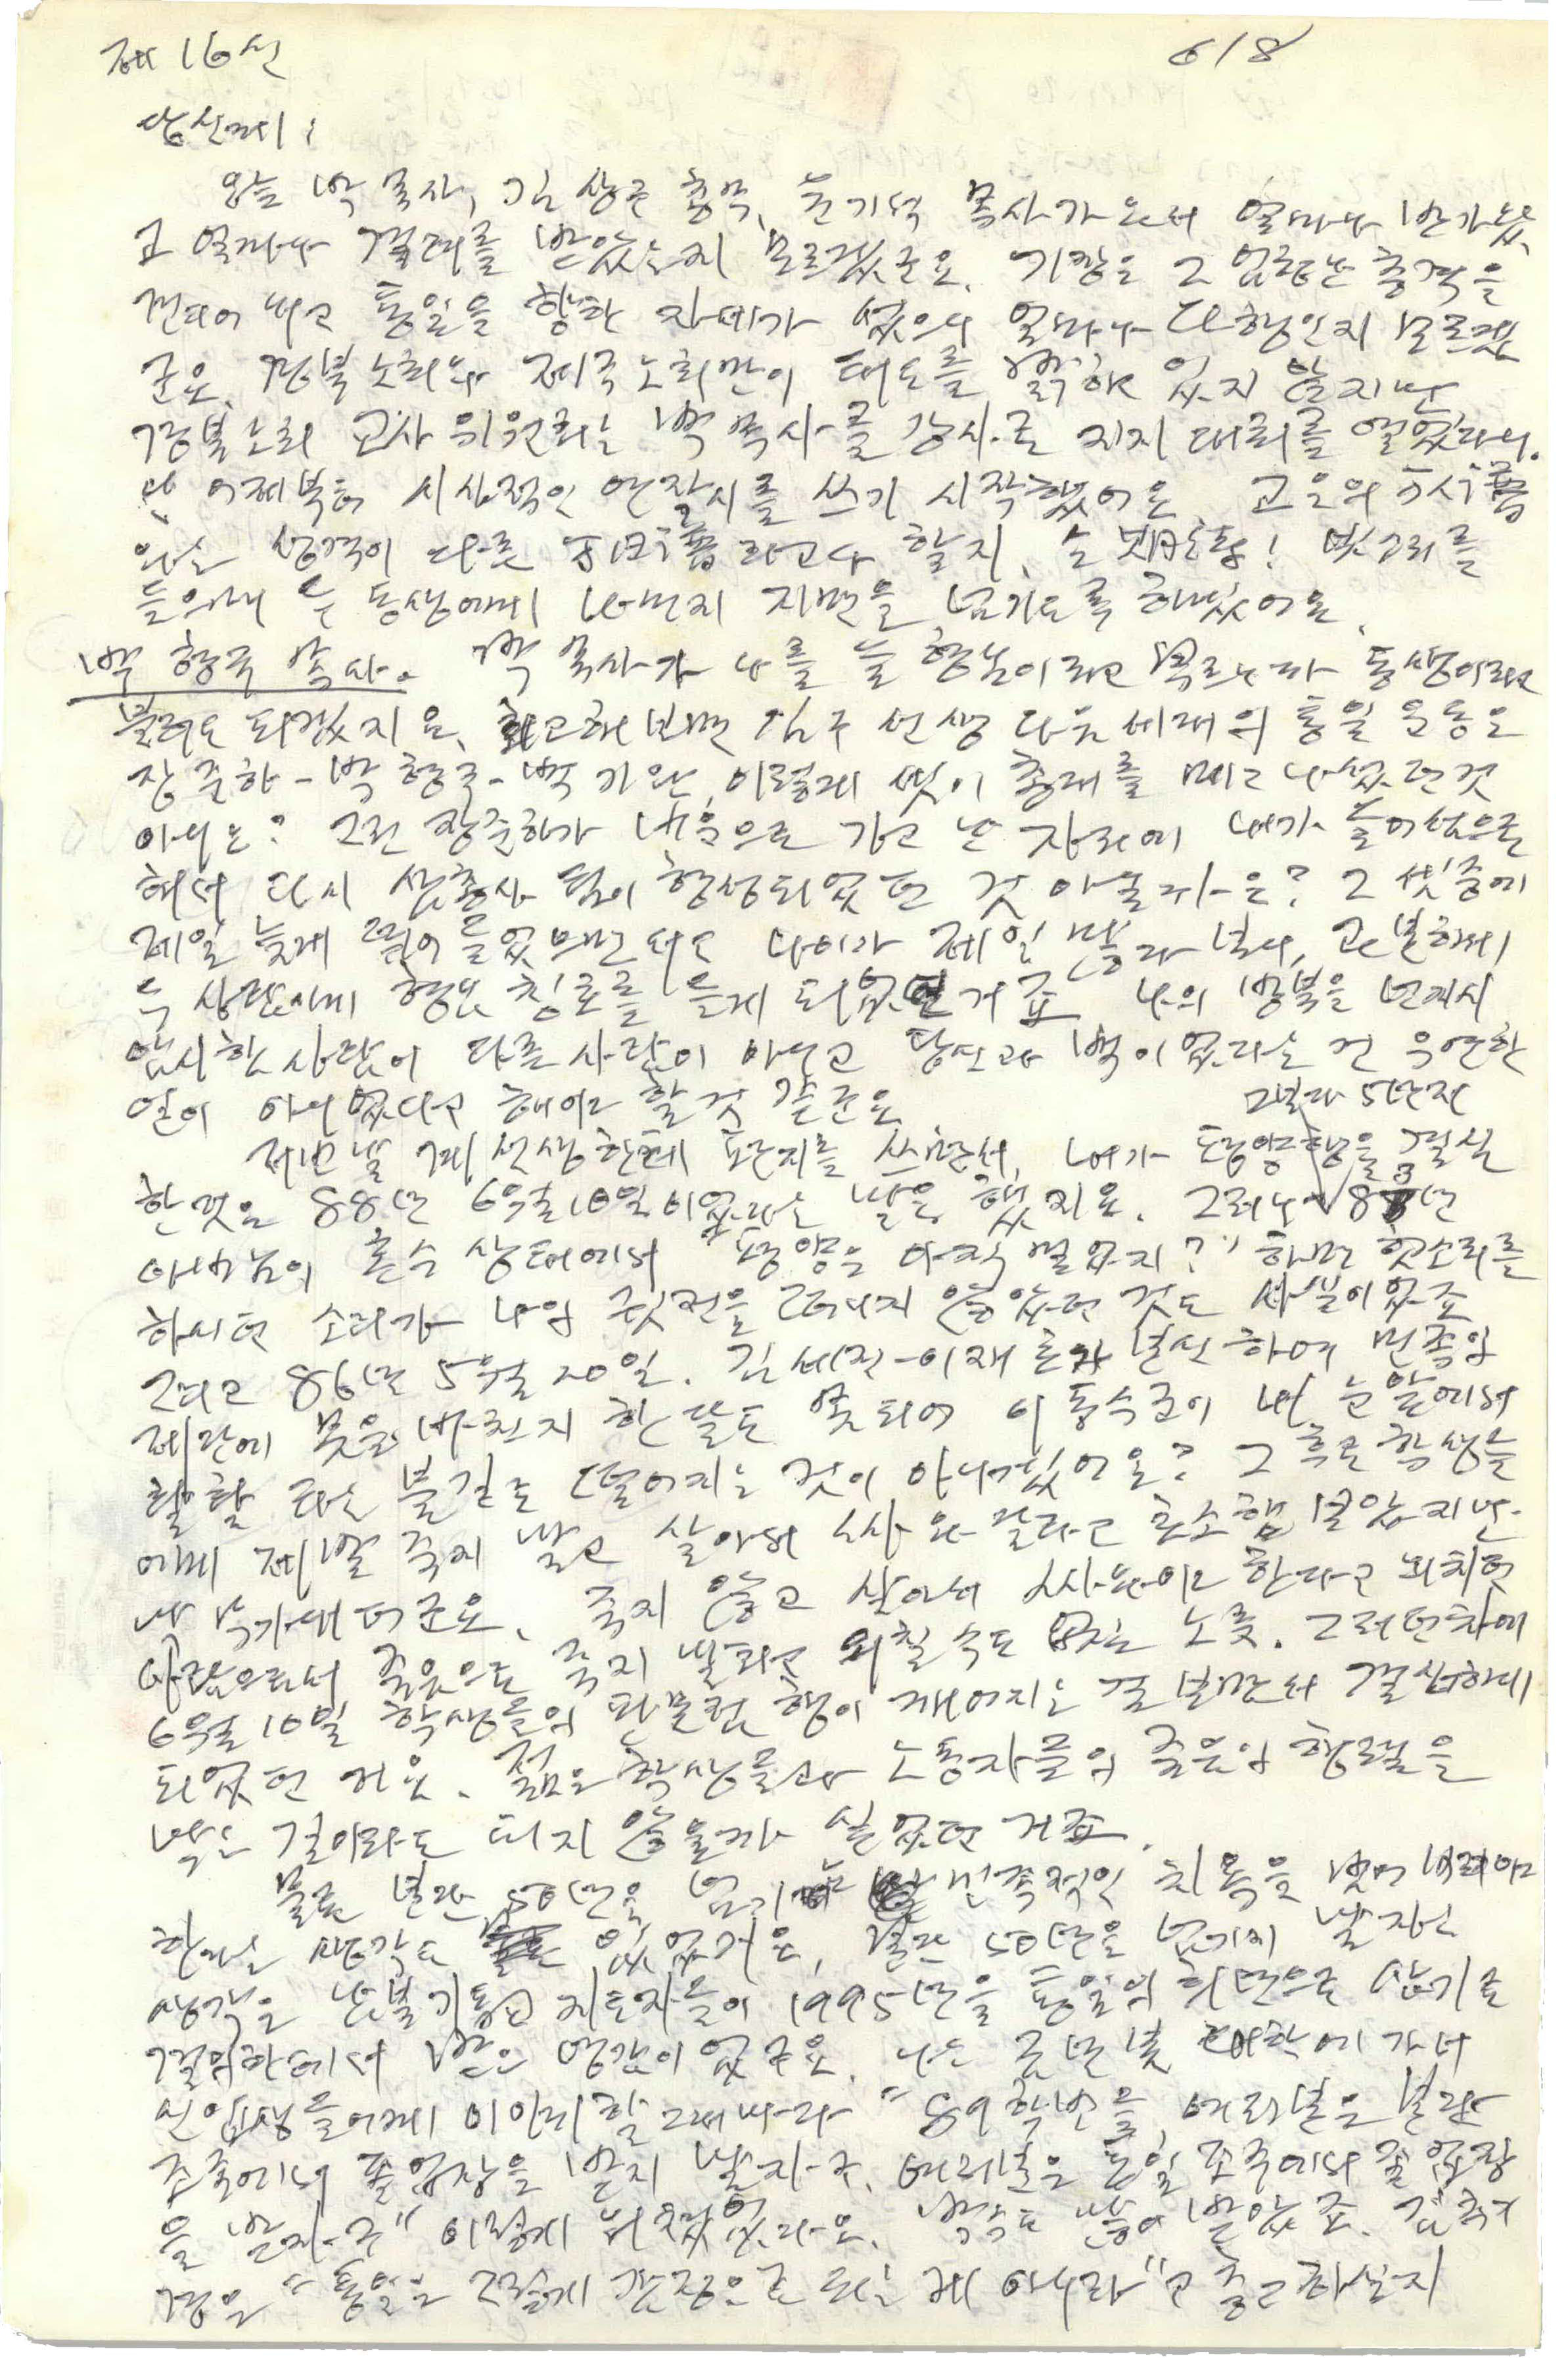 제 16신 6/8
당신께 :
오늘 박 목사, 김상근 총무, 윤기석 목사가 와서 얼마나 반가웠
고 얼마나 격려를 받았는지 모르겠군요. 기장은 그 엄청난 충격을
견디어 내고 통일을 향한 자세가 섰으니 얼마나 다행인지 모르겠
군요. 경북노회와 제주노회만이 태도를 밝히고 있지 않지만
경북노회 교사위원회는 박 목사를 강사로 지지 대회를 열었다니.
난 어제부터 시사적인 연작시를 쓰기 시작했어요. 고은의
와는 성격이 다른 라고나 할지, 늘 봄! 벗들을
들으며 두 동생에게 10번지 지면을 넘기도록 하겠어요.
박 형규 목사. 박 목사가 나를 늘 형님이라고 부르니까 동생이라고
불러도 되겠지요. 회고해 보면 김구 선생 다음 세대의 통일 운동은
장준하 - 박형규 - 백기완, 이렇게 셋이 총대를 메고 나섰던 것
아니오? 그런 장준하가 죽음으로 가고 난 자리에 내가 들어섬으로
해서 다시 삼총사 팀이 형성되었던 것 아닐까요? 그 셋 중에
제일 늦게 뛰어들었으면서도 나이가 제일 많다 보니, 고분하게
두 사람에게 형님 칭호를 듣게 되었던 거죠. 나의 방북을 먼저
암시한 사람이 다른 사람이 아니고 당신과 백이었다는 건 우연한
일이 아니었다고 해야 할 것 같군요. 그보다 5년 전
저번 날 계 선생한테 편지를 쓰면서, 내가 평양행을 결심
한 것은 88년 6월 10일이었다는 말을 했지요. 그러나 83년
아버님의 혼수 상태에서 "평양은 아직 멀었지?" 하면 헛소리를
하시던 소리가 나의 귓전을 떠나지 않았던 것도 사실이었죠.
그리고 86년 5월 20일. 김세진-이재호가 분신하여 민족의
제단에 몸을 바친지 한 달도 못되어 이동수군이 내 눈앞에서
활활 타는 불길로 떨어지는 것이 아니겠어요? 그 후로 학생들
에게 제발 죽지 말고 살아서 싸워 달라고 호소해 보았지만
안 먹가대더군요. 죽지 않고 살아서 싸워야 한다고 외치던
사람으로서 죽음으로 죽지 말라고 외칠 수도 없는 노릇. 그러던 차에
6월 10일 학생들의 판문점 행이 깨어지는 걸 보면서 결심하게
되었던 거요. 젊은 학생들과 노동자들의 죽음의 행렬을
막는 길이라도 되지 않을까 싶었던 거죠.
물론 분단 50년을 넘기는 민족적인 치욕을 벗어 버려야
한다는 생각도 있었어요. 분단 50년을 넘기지 말자는
생각은 남북 기독교 지도자들이 1995년을 통일의 희년으로 삼기로
결의한데서 받은 영감이었구요. 나는 금년 봄 대학에 가서
신입생들에게 이야기할 때마다 "89학번들, 여러분은 분단
조국에서 졸업장을 받지 말자구. 여러분은 통일 조국에서 졸업장
을 받자구" 이렇게 외쳤었다오. 박수도 많이 받았죠. 김추기
경은 "통일은 그렇게 감정으로 되는 게 아니라"고 충고하실지